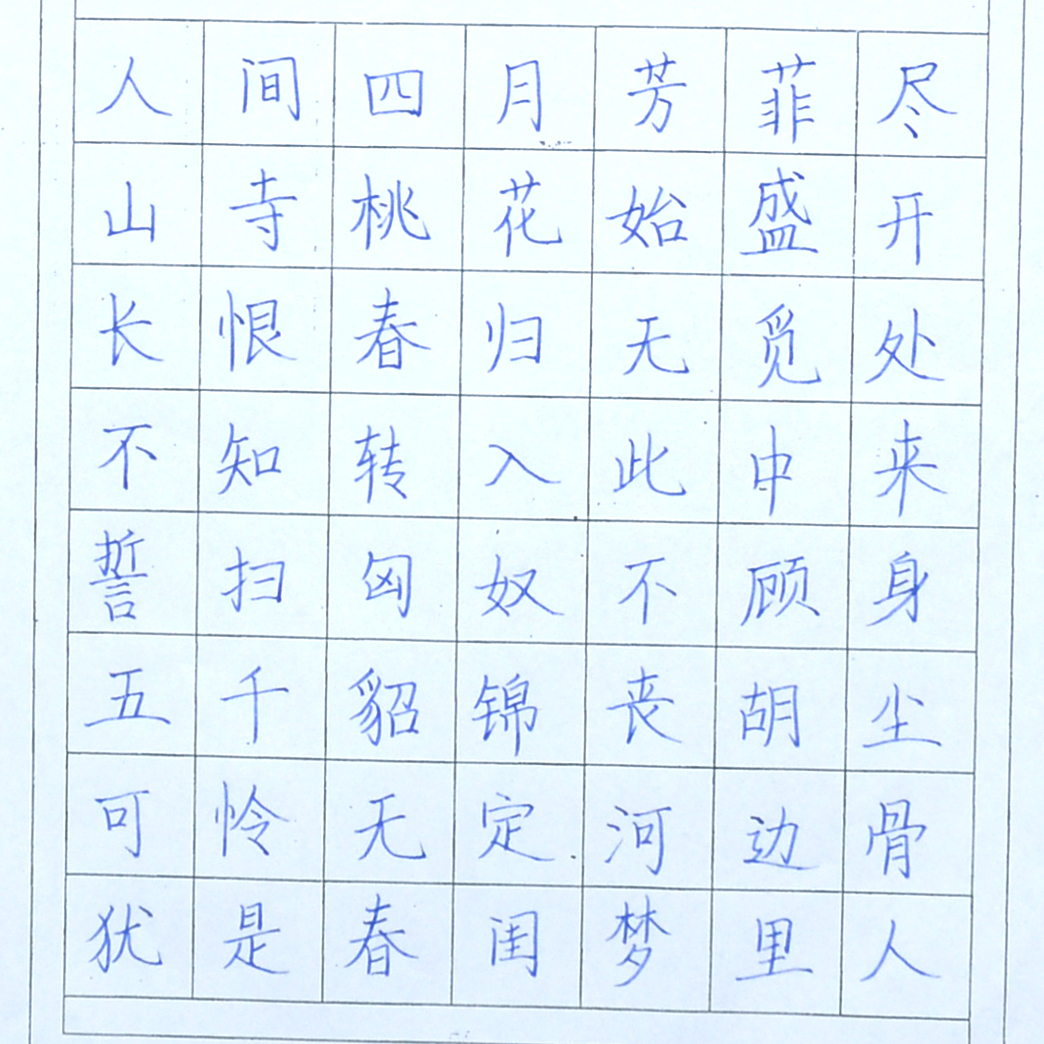 人间四月芳菲尽
山寺桃花始盛开
长恨春归无觅处
不知转入此中来
誓扫匈奴不顾身
五千貂锦丧胡尘
可怜无定河边骨
犹是春闺梦里人